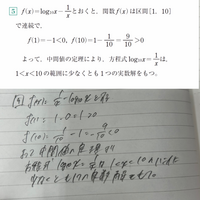 5 f(x)=log₁₀x−1/x とおくと、関数f(x)は区間[1, 10]
で連続で、
f(1)=−1<0, f(10)=1−1/10=9/10>0
よって、中間値の定理により、方程式log₁₀x=1/xは、
1<x<10の範囲に少なくとも1つの実数解をもつ。
5 f(x)=1/x−log₁₀x と
f(1)=1−0=1>0
f(10)=1/10−1=−9/10<0
よって中間値の定理より
方程式 log₁₀x=1/x 1<x<10
少なくとも1つの実数解をもつ。